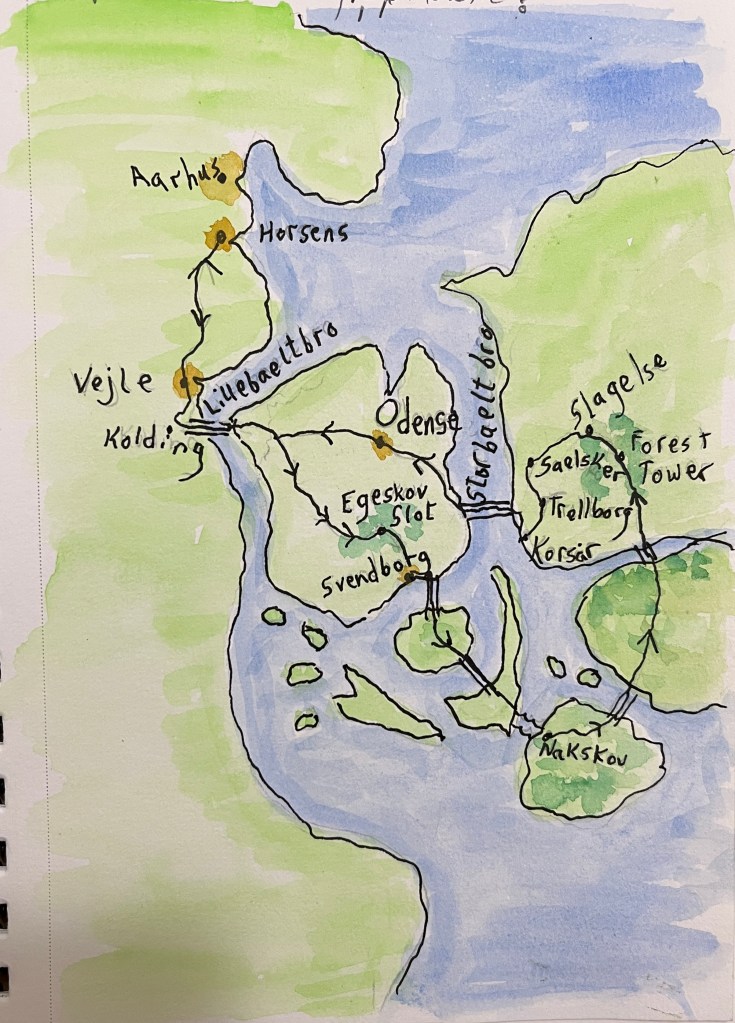 Aarhus
Horsens
Vejle
Lillebaeltbro
Kolding
Odense
Storbaelt bro
Slagelse
Forest
Tower
Saelsker
Trellborg
Korsär
Egeskov
Slot
Svendborg
Nakskov